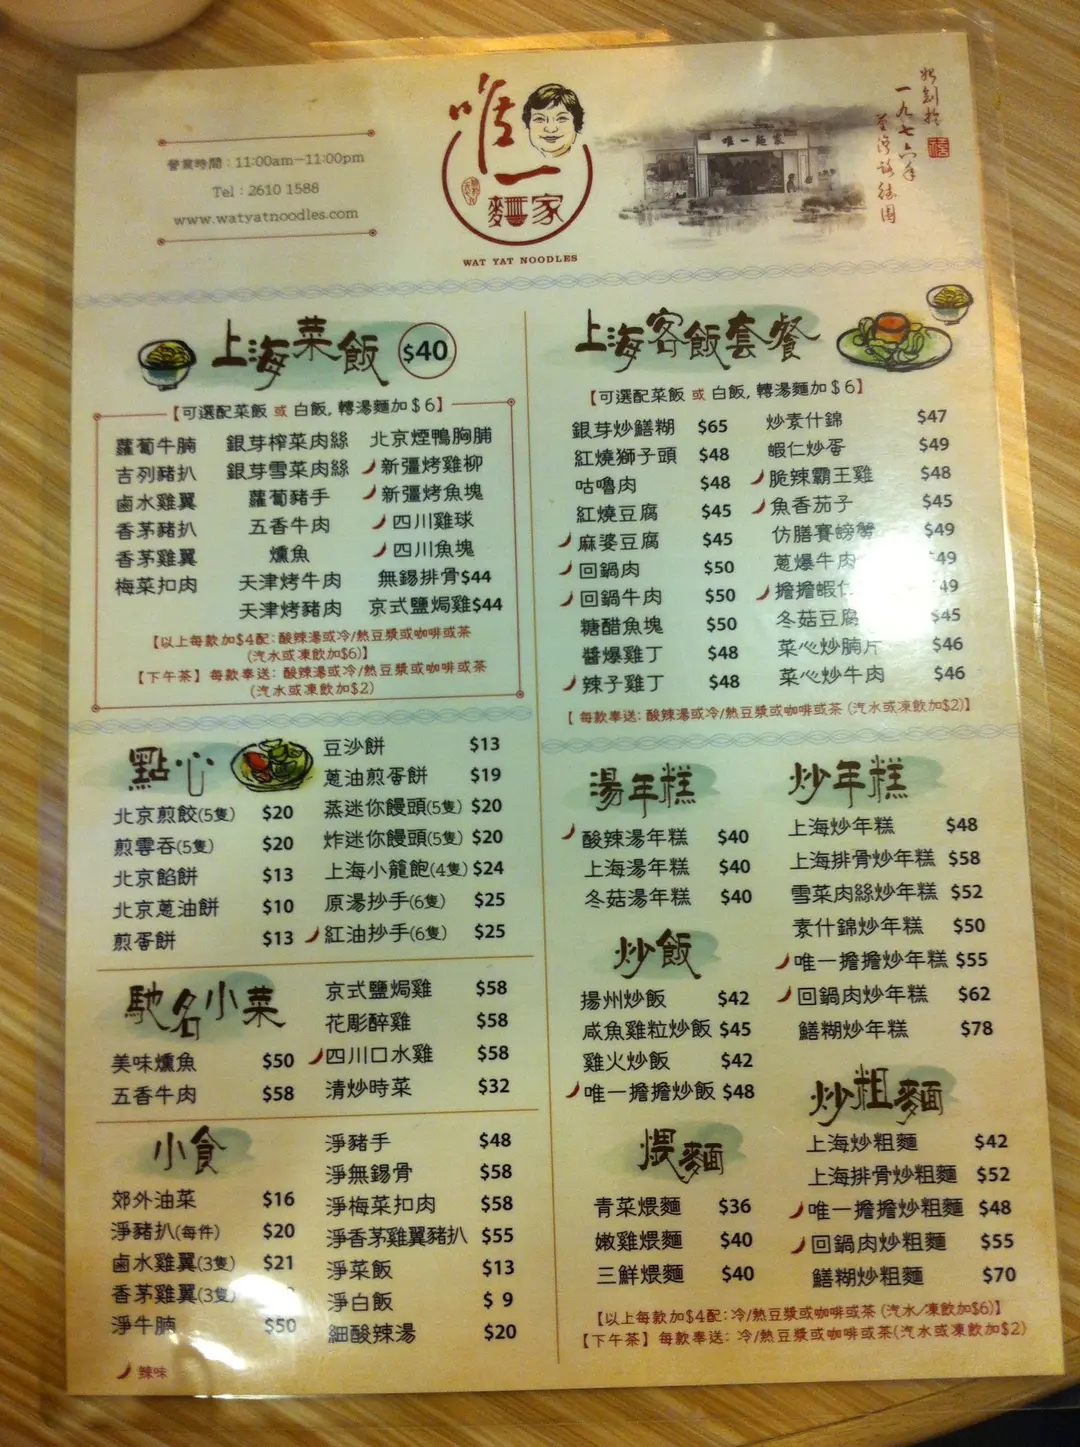 營業時間：11:00am-11:00pm
Tel : 2610 1588
www.watyatnoodles.com
唯一
麵家
WAT YAT NOODLES
唯一麵家
始創於
一九七六年
荃灣路德圍
上海菜飯 $40
【可選配菜飯 或 白飯, 轉湯麵加$6】
蘿蔔牛腩 銀芽榨菜肉絲 北京煙鴨胸脯
吉列豬扒 銀芽雪菜肉絲 新彊烤雞柳
鹵水雞翼 蘿蔔豬手 新彊烤魚塊
香茅豬扒 五香牛肉 四川雞球
香茅雞翼 燻魚 四川魚塊
梅菜扣肉 天津烤牛肉 無錫排骨$44
天津烤豬肉 京式鹽焗雞$44
【以上每款加$4配: 酸辣湯或冷/熱豆漿或咖啡或茶
(汽水或凍飲加$6)】
【下午茶】每款奉送: 酸辣湯或冷/熱豆漿或咖啡或茶
(汽水或凍飲加$2)
上海客飯套餐
【可選配菜飯 或 白飯, 轉湯麵加$6】
銀芽炒鱔糊 $65 炒素什錦 $47
紅燒獅子頭 $48 蝦仁炒蛋 $49
咕嚕肉 $48 脆辣霸王雞 $48
紅燒豆腐 $45 魚香茄子 $45
麻婆豆腐 $45 仿膳賽螃蟹 $49
回鍋肉 $50 蔥爆牛肉 $49
回鍋牛肉 $50 擔擔蝦仁 49
糖醋魚塊 $50 冬菇豆腐 $45
醬爆雞丁 $48 菜心炒腩片 $46
辣子雞丁 $48 菜心炒牛肉 $46
【 每款奉送: 酸辣湯或冷/熱豆漿或咖啡或茶 (汽水或凍飲加$2)】
點心
豆沙餅 $13
蔥油煎蛋餅 $19
北京煎餃(5隻) $20 蒸迷你饅頭(5隻) $20
煎雲吞(5隻) $20 炸迷你饅頭(5隻) $20
北京餡餅 $13 上海小籠飽(4隻) $24
北京蔥油餅 $10 原湯抄手(6隻) $25
煎蛋餅 $13 紅油抄手(6隻) $25
馳名小菜
京式鹽焗雞 $58
花彫醉雞 $58
美味燻魚 $50 四川口水雞 $58
五香牛肉 $58 清炒時菜 $32
小食
淨豬手 $48
淨無錫骨 $58
郊外油菜 $16 淨梅菜扣肉 $58
淨豬扒(每件) $20 淨香茅雞翼豬扒 $55
鹵水雞翼(3隻) $21 淨菜飯 $13
香茅雞翼(3隻) 淨白飯 $ 9
淨牛腩 $50 細酸辣湯 $20
辣味
湯年糕
酸辣湯年糕 $40
上海湯年糕 $40
冬菇湯年糕 $40
炒飯
揚州炒飯 $42
咸魚雞粒炒飯 $45
雞火炒飯 $42
唯一擔擔炒飯 $48
煨麵
青菜煨麵 $36
嫩雞煨麵 $40
三鮮煨麵 $40
炒年糕
上海炒年糕 $48
上海排骨炒年糕 $58
雪菜肉絲炒年糕 $52
素什錦炒年糕 $50
唯一擔擔炒年糕 $55
回鍋肉炒年糕 $62
鱔糊炒年糕 $78
炒粗麵
上海炒粗麵 $42
上海排骨炒粗麵 $52
唯一擔擔炒粗麵 $48
回鍋肉炒粗麵 $55
鱔糊炒粗麵 $70
【以上每款加$4配: 冷/熱豆漿或咖啡或茶 (汽水/凍飲加$6)】
【下午茶】每款奉送: 冷/熱豆漿或咖啡或茶(汽水或凍飲加$2)